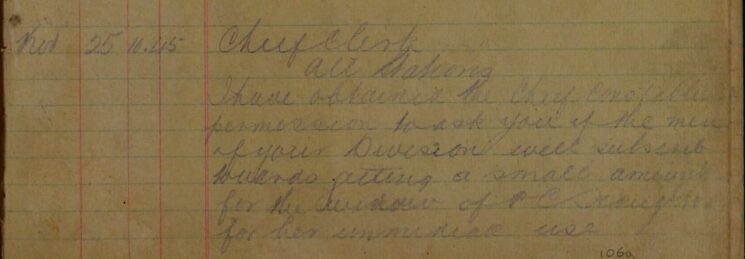 Red 25 11.45 Chief Clerk
All Stations
I have obtained the Chief Constable
permission to ask you if the men
of your Division will subscrib
towards getting a small amount
for the widow of P.C.
for her immediate use
106a